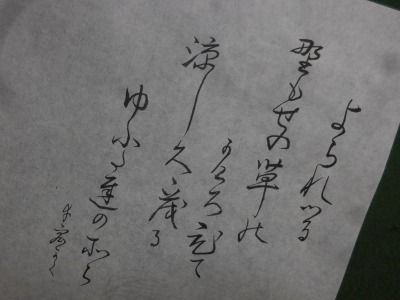 よられつる
野もせの草の
かけろひて
涼しくゝもる
ゆふたちのそら